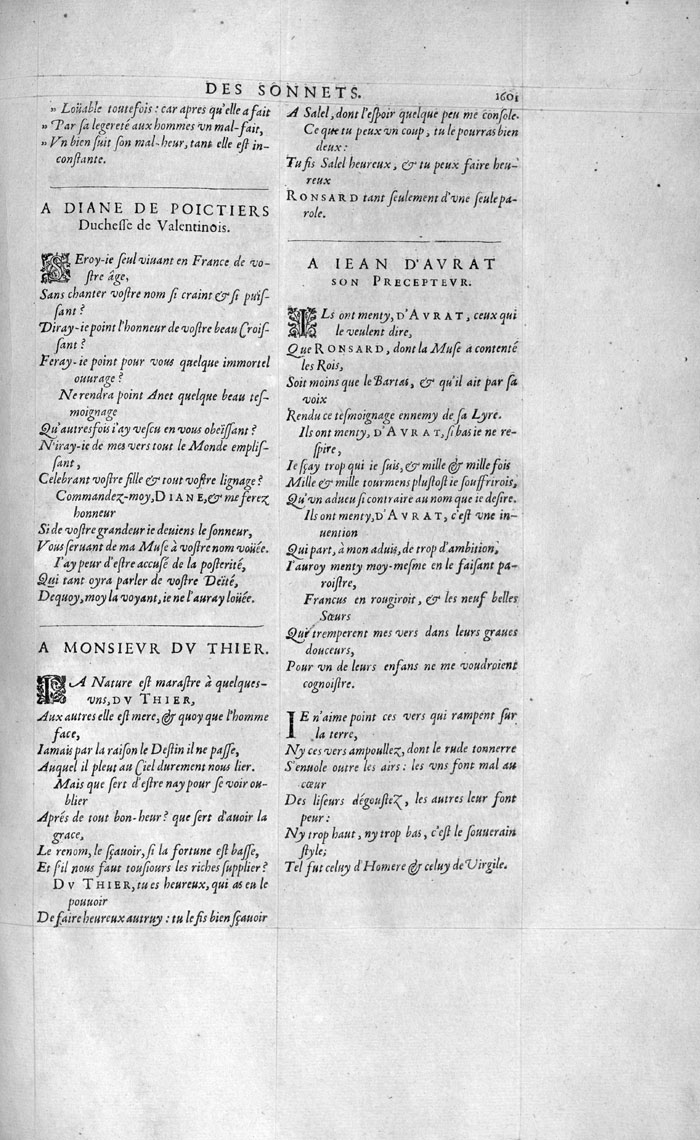 DES SONNETS.
1601
„ Loüable toutefois : car apres qu'elle a fait
„ Par sa legereté aux hommes vn mal-fait,
„ Vn bien suit son mal-heur, tant elle est in-
constante.
A DIANE DE POICTIERS
Duchesse de Valentinois.
SEroy-ie seul viuant en France de vo-
stre âge,
Sans chanter vostre nom si craint & si puis-
sant ?
Diray-ie point l'honneur de vostre beau Crois-
sant ?
Feray-ie point pour vous quelque immortel
ouurage ?
Ne rendra point Anet quelque beau tes-
moignage
Qu'autresfois i'ay vescu en vous obeïssant ?
N'iray-ie de mes vers tout le Monde emplis-
sant,
Celebrant vostre fille & tout vostre lignage ?
Commandez-moy, DIANE, & me ferez
honneur
Si de vostre grandeur ie deuiens le sonneur,
Vous seruant de ma Muse à vostre nom voüée.
I'ay peur d'estre accusé de la posterité,
Qui tant oyra parler de vostre Deïté,
Dequoy, moy la voyant, ie ne l'auray loüée.
A MONSIEVR DV THIER.
LA Nature est marastre à quelques-
vns, DV THIER,
Aux autres elle est mere, & quoy que l'homme
face,
Iamais par la raison le Destin il ne passe,
Auquel il pleut au Ciel durement nous lier.
Mais que sert d'estre nay pour se voir ou-
blier
Aprés de tout bon-heur ? que sert d'auoir la
grace,
Le renom, le sçauoir, si la fortune est basse,
Et s'il nous faut tousiours les riches supplier ?
DV THIER, tu es heureux, qui as eu le
pouuoir
De faire heureux autruy : tu le fis bien sçauoir
A Salel, dont l'espoir quelque peu me console.
Ce que tu peux vn coup, tu le pourras bien
deux :
Tu fis Salel heureux, & tu peux faire heu-
reux
RONSARD tant seulement d'vne seule pa-
role.
A IEAN D'AVRAT
SON PRECEPTEVR.
ILs ont menty, D'AVRAT, ceux qui
le veulent dire,
Que RONSARD, dont la Muse a contenté
les Rois,
Soit moins que le Bartas, & qu'il ait par sa
voix
Rendu ce tesmoignage ennemy de sa Lyre.
Ils ont menty, D'AVRAT, si bas ie ne re-
spire,
Ie sçay trop qui ie suis, & mille & mille fois
Mille & mille tourmens plustost ie souffrirois,
Qu'vn adueu si contraire au nom que ie desire.
Ils ont menty, D'AVRAT, c'est vne in-
uention
Qui part, à mon aduis, de trop d'ambition,
I'auroy menty moy-mesme en le faisant pa-
roistre,
Francus en rougiroit, & les neuf belles
Sœurs
Qui tremperent mes vers dans leurs graues
douceurs,
Pour vn de leurs enfans ne me voudroient
cognoistre.
IE n'aime point ces vers qui rampent sur
la terre,
Ny ces vers ampoullez, dont le rude tonnerre
S'enuole outre les airs : les vns font mal au
cœur
Des liseurs dégoustez, les autres leur font
peur :
Ny trop haut, ny trop bas, c'est le souuerain
style ;
Tel fut celuy d'Homere & celuy de Virgile.